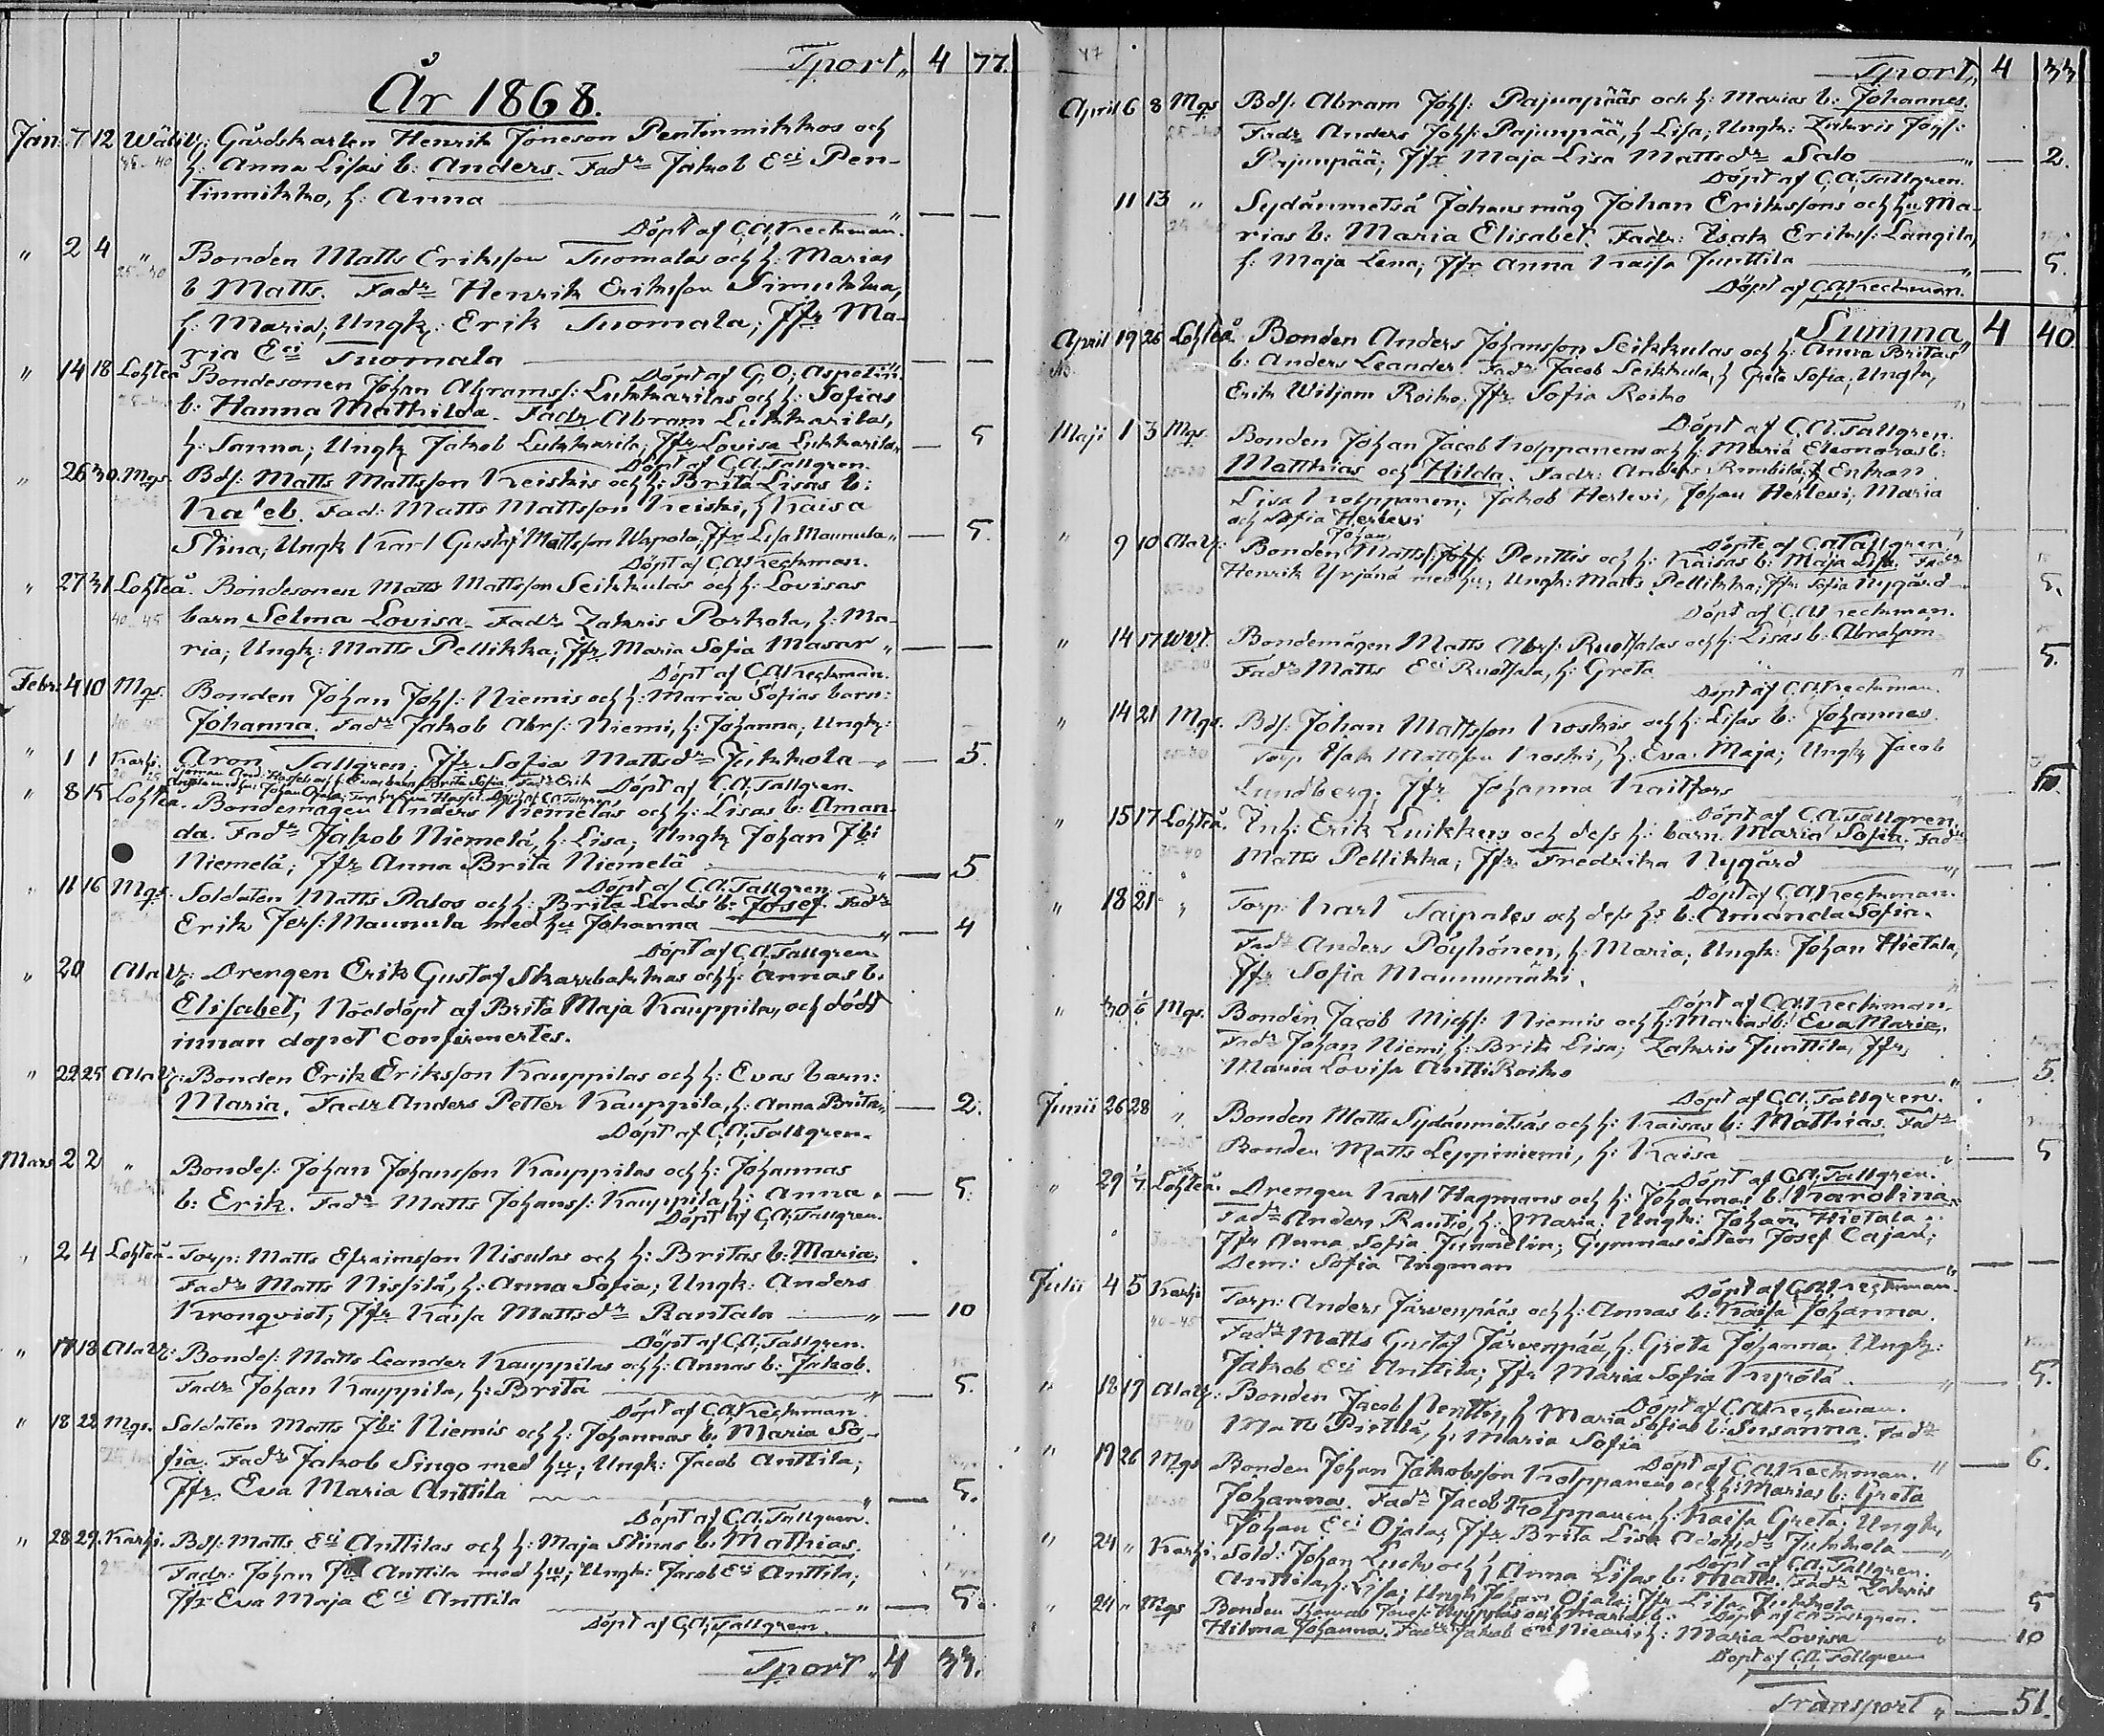 Tport „ 4 77.
År 1868.
Jan: 7 12 Wäliv: Gårdskarlen Henrik Joneson Pentinmikkos och
h: Anna Lisas b: Anders. Fadr Jakob Eci Pen-
tinmikko, h: Anna „ — —
Döpt af C.A. Keckman.
„ 2 4 „ Bonden Matts Eriksson Tuomalas och h: Marias
b Matts. Fadr Henrik Eriksson Simukka,
h: Maria; Ungk: Erik Tuomala; Jfr Ma-
ria Eci Tuomala — —
Döpt af G. O; Aspelin.
„ 14 18 Lohteå Bondesonen Johan Abramss: Lukkarilas och h: Sofias
b: Hanna Mathilda. Fadr Abram Lukkarilas,
h: Sanna; Ungk Jakob Lukkarila; Jfr Lovisa Lukkarila „ — 5
Döpt af C.A. Tallgren.
„ 26 30. Mgs. Bds: Matts Mattsson Keiskis och h: Brita Lisas b:
Kaleb. Fad: Matts Mattsson Keiski, h Kaisa
Stina; Ungk Karl Gustaf Mattsson Uspola; Jfr Lisa Maunula „ — 5.
Döpt af C.A. Keckman.
„ 27 31 Lohteå. Bondesonen Matts Mattsson Seikkulas och h: Lovisas
barn Selma Lovisa. Fadr Zakris Porkola, h: Ma-
ria; Ungk: Matts Pellikka; Jfr Maria Sofia Masar „ — —
Döpt af C.A. Keckman.
Febr: 4 10 Mgs. Bonden Johan Johs: Niemis och h: Maria Sofias barn:
Johanna. Fadr Jakob Abrs: Niemi, h: Johanna; Ungk:
Aron Tallgren; Jfr Sofia Mattsdr Jukkola „ — 5.
„ 1 1 Karhi. Sjöman And: Hassels och h: Evas barn Brita Sofia. Fadr Erik
Anttila med hu; Johan Ojala; Eva Hassel. Döpt af C.A. Tallgren
Döpt af C.A. Tallgren.
„ 8 15 Lohteå. Bondemågen Anders Niemeläs och h: Lisas b: Aman-
da. Fadr Jakob Niemelä, h: Lisa; Ungk Johan Jbi
Niemelä; Jfr Anna Brita Niemelä „ — 5
Döpt af C.A. Tallgren.
„ 11 16 Mgs. Soldaten Matts Palos och h: Brita Lenas b: Josef. Fadr
Erik Jers: Maunula med hu Johanna „ — 4
Döpt af C.A. Tallgren.
„ 20 Alav: Drengen Erik Gustaf Skarrbakkas och h: Annas b.
Elisabet; Nöddöpt af Brita Maja Kauppila, och dödt
innan dopet confirmertes.
„ 22 25 Alav: Bonden Erik Eriksson Kauppilas och h: Evas barn:
Maria. Fadr Anders Petter Kauppila, h: Anna Brita „ — 2.
Döpt af C.A. Tallgren.
Mars 2 2 „ Bondes: Johan Johansson Kauppilas och h: Johannas
b: Erik. Fadr Matts Johanss: Kauppila, h: Anna „ — 5.
Döpt af C.A. Tallgren.
„ 2 4 Lohteå. Torp: Matts Efraimsson Nisulas och h: Britas b: Maria.
Fadr Matts Nissilä, h: Anna Sofia; Ungk: Anders
Kronqvist; Jfr Kaisa Mattsdr Rantala „ — 10
Döpt af C.A. Tallgren.
„ 17 18 Alav: Bondes: Matts Leander Kauppilas och h: Annas b: Jakob.
Fadr Johan Kauppila, h: Brita „ — 5.
Döpt af C.A. Keckman.
„ 18 22 Mgs. Soldaten Matts Jbi Niemis och h: Johannas b: Maria So-
fia. Fadr Jakob Singo med hu; Ungk: Jacob Anttila;
Jfr Eva Maria Anttila „ — 5.
Döpt af C.A. Tallgren.
„ 28 29. Karhi. Bds: Matts Eci Anttilas och h: Maja Stinas b: Mathias.
Fadr: Johan Anttila med hu; Ungk: Jacob Eci Anttila;
Jfr Eva Maja Eci Anttila „ — 5.
Döpt af C.A. Tallgren.
Tport „ 4 33.
47
Tport „ 4 33
April 6 8 Mgs Bds: Abram Johs: Pajunpääs och h: Marias b: Johannes.
Fadr Anders Johs: Pajunpää, h Lisa; Ungk: Zakris Johs:
Pajunpää; Jfr Maja Lisa Mattsdr Salo „ — 2.
Döpt af C.A. Tallgren.
11 13 „ Sydänmetsä Johans måg Johan Erikssons och hu Ma-
rias b: Maria Elisabet. Fadr: Isak Erikss: Langila,
h: Maja Lena; Jfr Anna Kaisa Junttila „ — 5.
Döpt af C.A. Keckman.
Summa „ 4 40.
April 19 26 Lohteå Bonden Anders Johansson Seikkulas och h: Anna Britas
b: Anders Leander. Fadr Jacob Seikkula, h Greta Sofia; Ungk,
Erik Wiljam Roiko; Jfr Sofia Roiko „ — —
Döpt af C.A. Tallgren.
Maji 1 3 Mgs. Bonden Johan Jacob Kolppanens och h: Maria Eleonoras b:
Matthias och Hilda. Fadr: Anders Rimbilä; Enkan
Lisa Kolppanen; Jakob Herlevi, Johan Herlevi; Maria
och Sofia Herlevi
Döpte af C.A. Tallgren.
„ 9 10 Alav: Bonden Matts Johan Johs: Penttis och h: Kaisas b: Maja Lisa. Fadr
Henrik Yrjänä med hu; Ungk: Matts Pellikka; Jfr Sofia Nygård 5.
Döpt af C.A. Keckman.
„ 14 17 Bondemågen Matts Abrs: Ruotsalas och h: Lisas b: Abraham
Fadr Matts Eci Ruotsala, h: Greta 5.
Döpt af C.A. Keckman.
„ 14 21 Mgs. Bds: Johan Mattsson Koskis och h: Lisas b: Johannes.
Torp. Isak Mattsson Koski, h: Eva Maja; Ungk Jacob
Lundberg; Jfr Johanna Kaitfors
Döpt af C.A. Tallgren.
„ 15 17 Lohteå. Inh: Erik Luikkus och dess h: barn: Maria Sofia. Fadr
Matts Pellikka; Jfr Fredrika Nygård „ — —
Döpt af C.A. Keckman.
„ 18 21 „ Torp: Karl Taipales och dess h: b: Amanda Sofia.
Fadr Anders Pöyhönen, h: Maria; Ungk: Johan Hietala,
Jfr Sofia Maununmäki. „ — —
Döpt af C.A. Keckman.
„ 30 1/6 Mgs. Bonden Jacob Michs: Niemis och h: Marias b: Eva Maria.
Fadr Johan Niemi, h: Brita Lisa; Zakris Junttila, Jfr
Maria Lovisa AnttiRoiko „ — 5.
Döpt af C.A. Tallgren.
Junii 26 28 „ Bonden Matts Sydänmetsäs och h: Kaisas b: Mathias. Fadr
Bonden Matts Leppiniemi, h: Kaisa „ — 5
Döpt af C.A. Tallgren.
„ 29 1/7 Lohteå. Drengen Karl Hagmans och h: Johannas b: Karolina.
Fadr Anders Rautio, h: Maria; Ungk: Johan Hietala;
Jfr Anna Sofia Junnelin; Gymnasisten Josef Cajan;
Dem: Sofia Ingman „ — —
Döpt af C.A. Keckman.
Julii 4 5 Karhi Torp: Anders Järvenpääs och h: Annas b: Kaisa Johanna.
Fadr Matts Gustaf Järvenpää, h: Greta Johanna; Ungk:
Jakob Eci Anttila; Jfr Maria Sofia Kypölä „ — 5.
Döpt af C.A. Keckman.
„ 18 19 Alav: Bonden Jacob Penttis, h Maria Sofias b: Susanna. Fadr
Matts Pietilä, h: Maria Sofia „ — 6.
Döpt af C.A. Keckman.
„ 19 26 Mgs Bonden Johan Jakobsson Kolppanens och h: Marias b: Greta
Johanna. Fadr Jacob Kolppanen h: Kaisa Greta; Ungk,
Johan Eci Ojala; Jfr Brita Lisa Adolfsdr Jukkola „
Döpt af C.A. Tallgren.
„ 24 „ Karhi. Sold: Johan Lucks och h Anna Lisas b: Matts. Fadr Zakris
Anttila, h: Lisa; Ungk Johan Ojala; Jfr Lisa Jukkola — 5
Döpt af C.A. Tallgren.
„ 24 „ Mgs Bonden Thomas och Marias b:
Hilma Johanna. Fadr Jakob h: Maria Lovisa „ — 10
Döpt af C.A. Tallgren
Transport „ — 51.